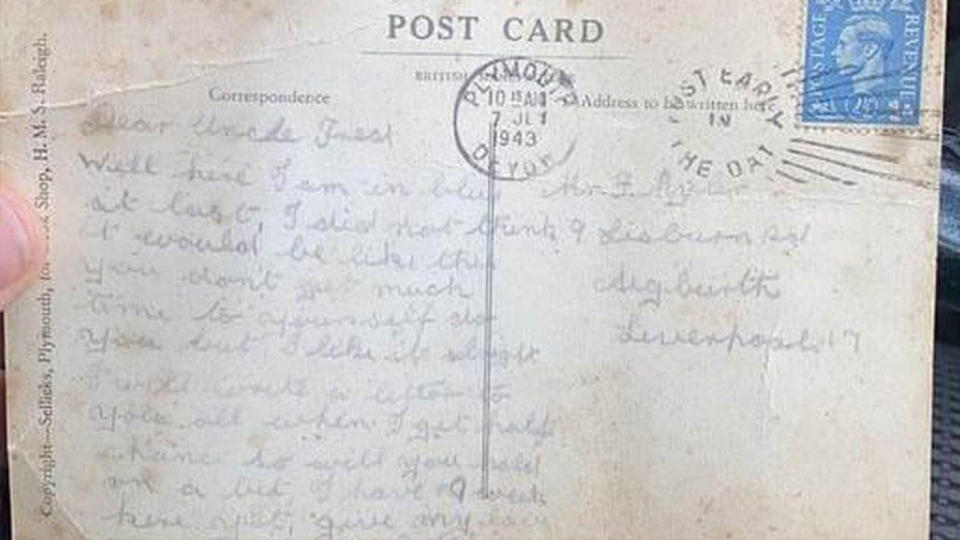 POST CARD
BRITISH
Correspondence
Address to be written here
PLYMOUTH
10 15 AM
7 JLY
1943
DEVON
POST EARLY
IN
THE DAY
POSTAGE
REVENUE
2½
Copyright—Sellicks, Plymouth, for Shop, H. M. S. Raleigh.
Dear Uncle Fred
Well here I am in blue
at last, I did not think
it would be like this
you don't get much
time to yourself do
you but I like it alright
I will write a letter to
you all when I get half
chance so will you hold
on a bit, I have 9 week
here yet, give my love
Mr F
9 Lisburn Rd
Aigburth
Liverpool 17